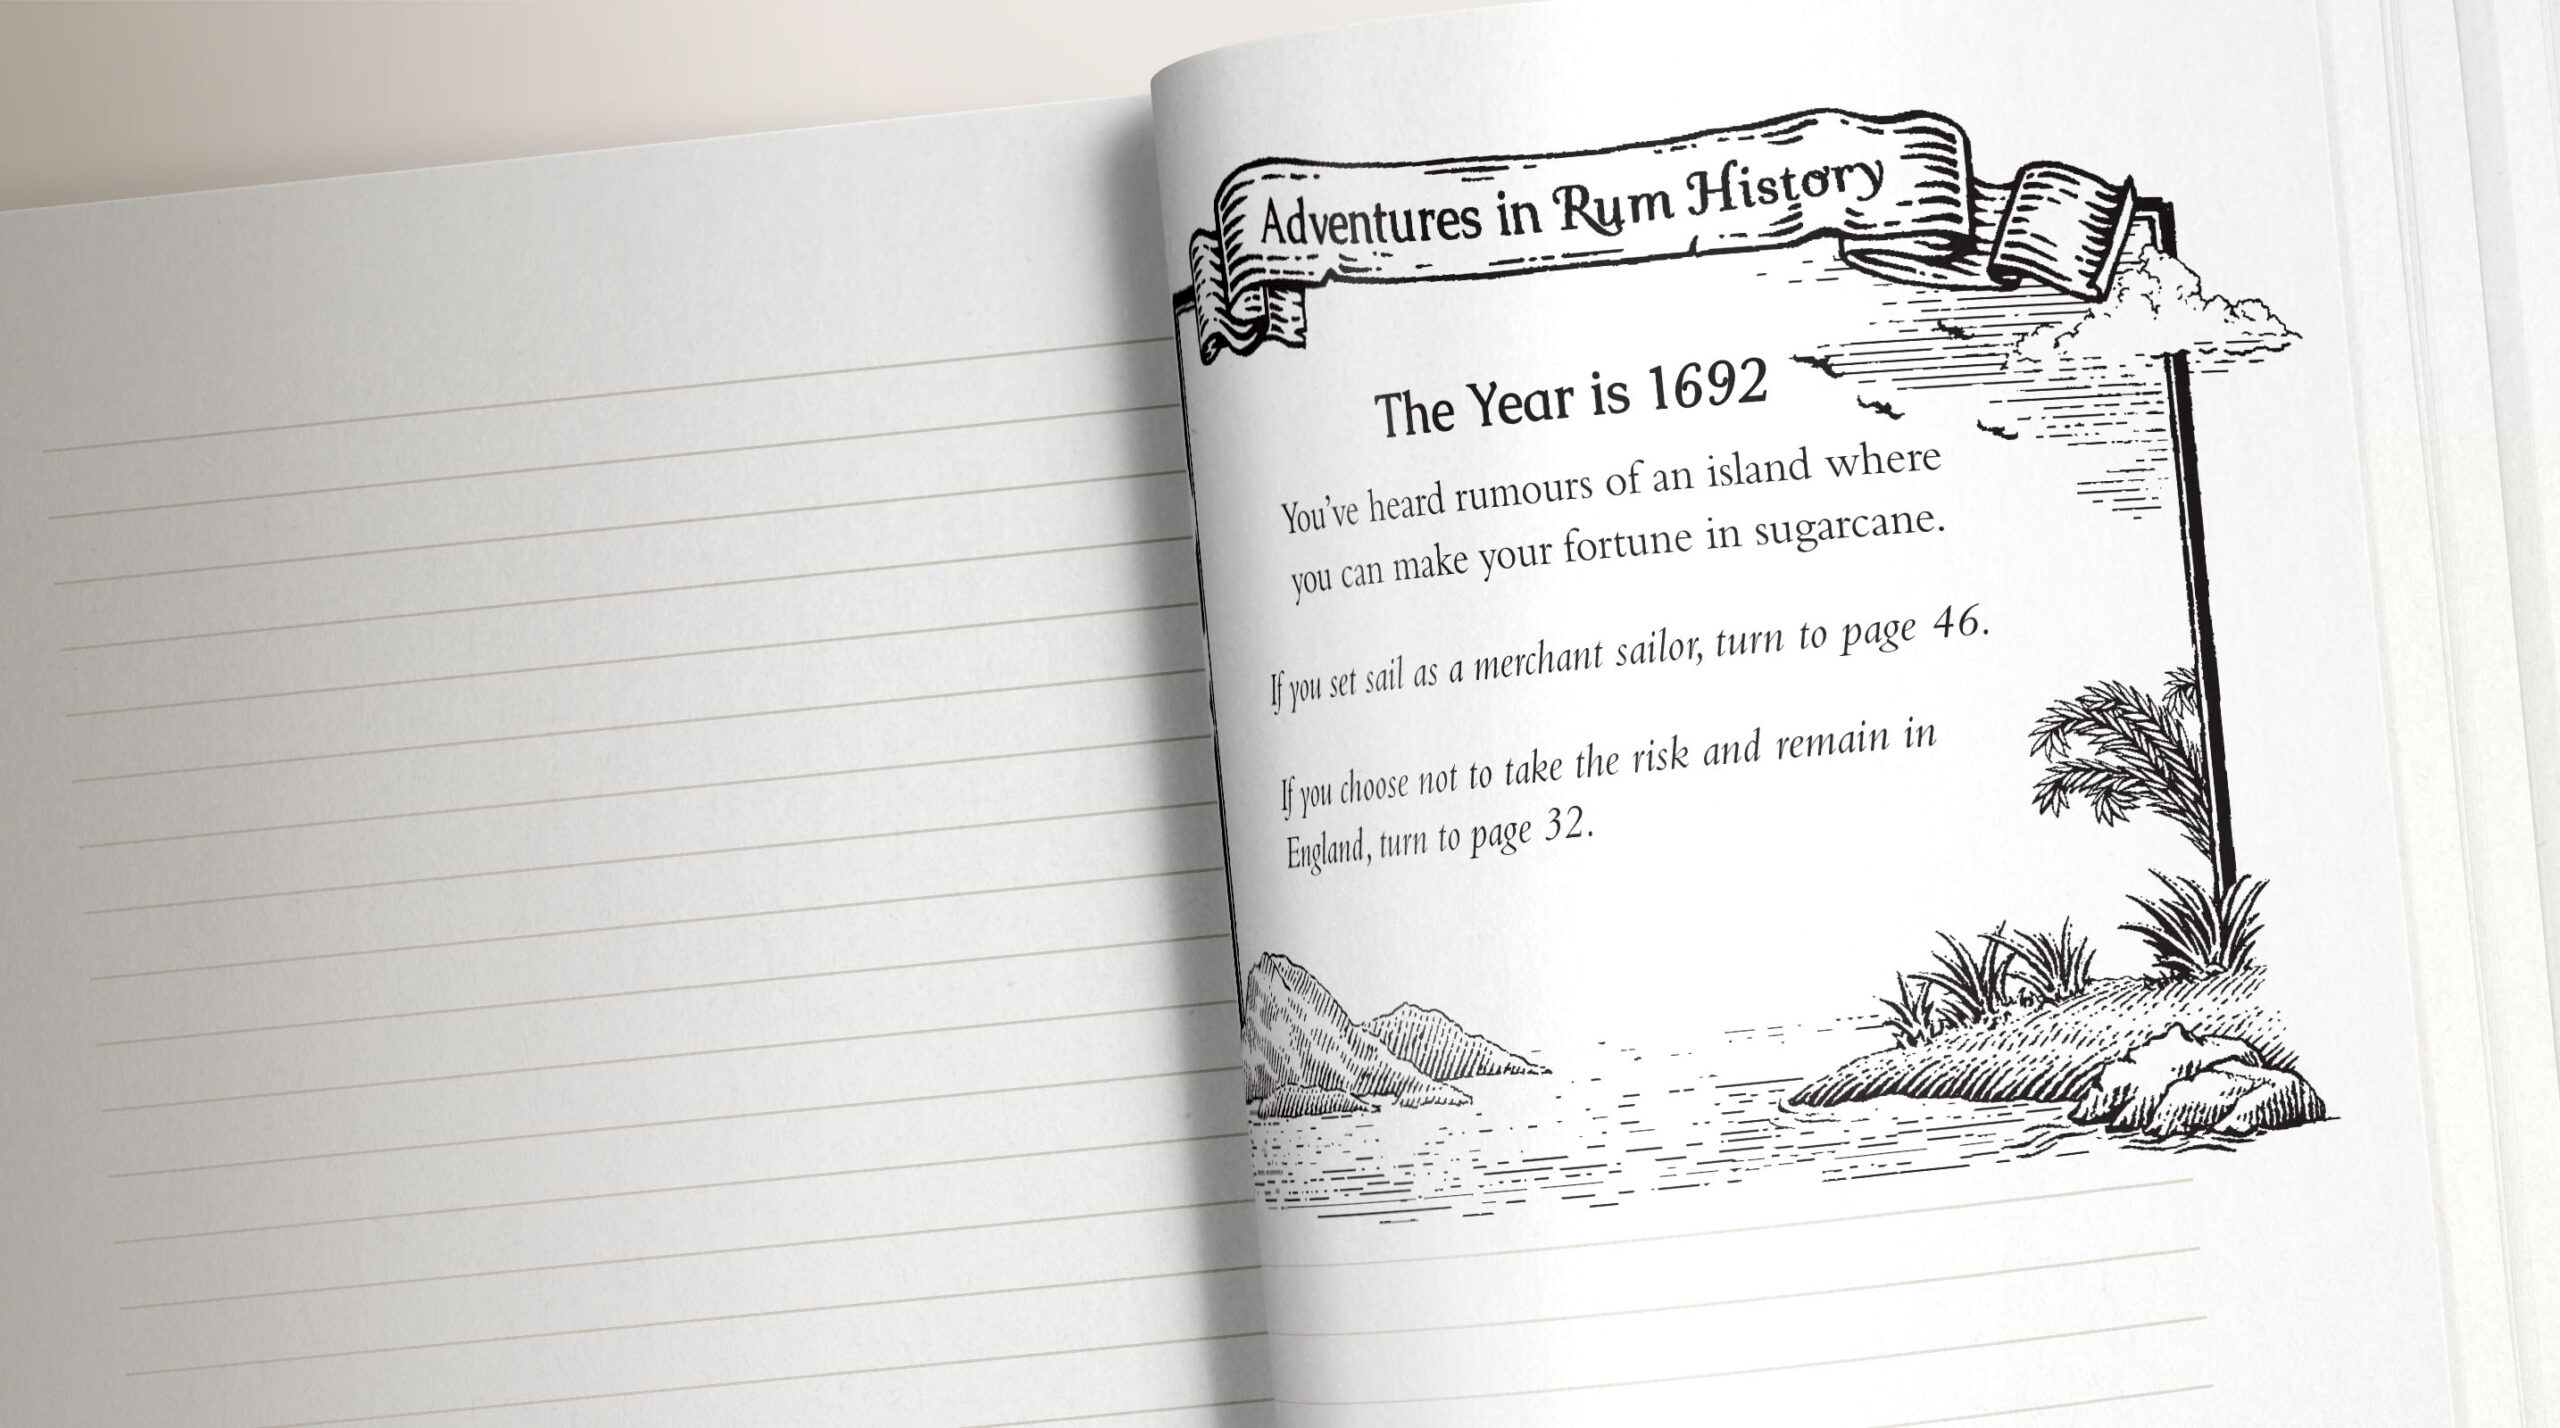 Adventures in Rum History
The Year is 1692
You've heard rumours of an island where
you can make your fortune in sugarcane.
If you set sail as a merchant sailor, turn to page 46.
If you choose not to take the risk and remain in
England, turn to page 32.